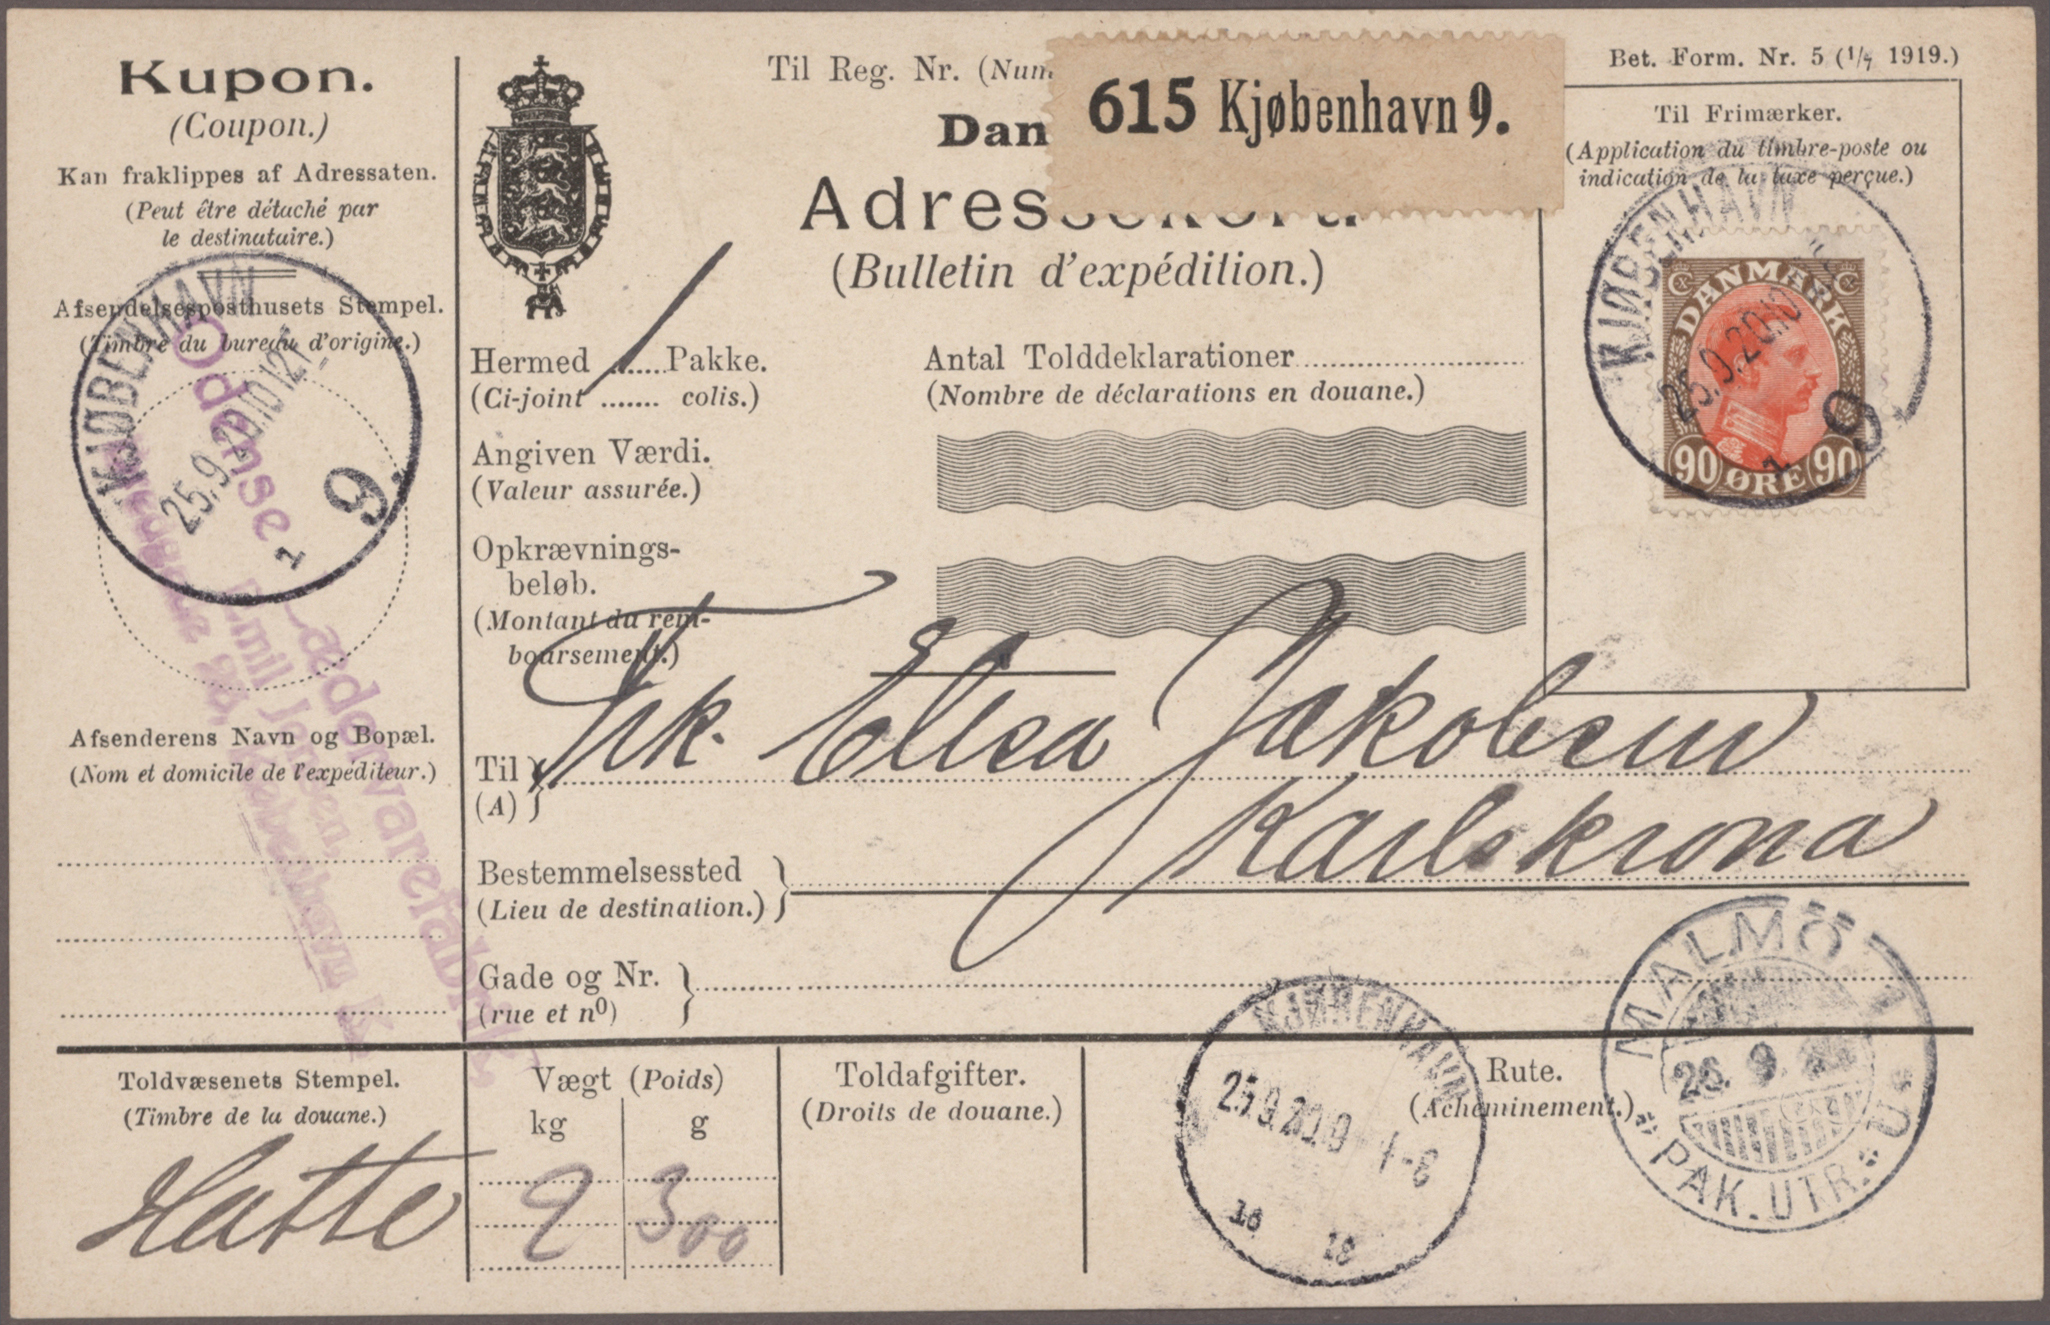 Kupon.
(Coupon.)
Kan fraklippes af Adressaten.
(Peut être détaché par
le destinataire.)
Afsendelsesposthusets Stempel.
(Timbre du bureau d'origine.)
KJØBENHAVN
25.9.20.10-12F
1 9.
Odense
Lædervarefabrik
Emil Jensen,
København K.
Afsenderens Navn og Bopæl.
(Nom et domicile de l'expéditeur.)
Til Reg. Nr. (Num
615 Kjøbenhavn 9.
Dan
Adressekort.
(Bulletin d'expédition.)
Hermed 1 Pakke.
(Ci-joint ....... colis.)
Antal Tolddeklarationer
(Nombre de déclarations en douane.)
Angiven Værdi.
(Valeur assurée.)
Opkrævnings-
beløb.
(Montant du rem-
boursement.)
Til
(A)
Frk. Elisa Jakobsen
Karlskrona
Bestemmelsessted
(Lieu de destination.)
Gade og Nr.
(rue et nº)
Bet. Form. Nr. 5 (1/7 1919.)
Til Frimærker.
(Application du timbre-poste ou
indication de la taxe perçue.)
KJØBENHAVN
25.9.20.10
1. 9.
DANMARK
90 ØRE 90
Toldvæsenets Stempel.
(Timbre de la douane.)
Hatte
Vægt (Poids)
kg g
2 300
Toldafgifter.
(Droits de douane.)
Rute.
(Acheminement.)
KJØBENHAVN
25.9.20.
18
MALMÖ 1
26. 9.
PAK. UTR.